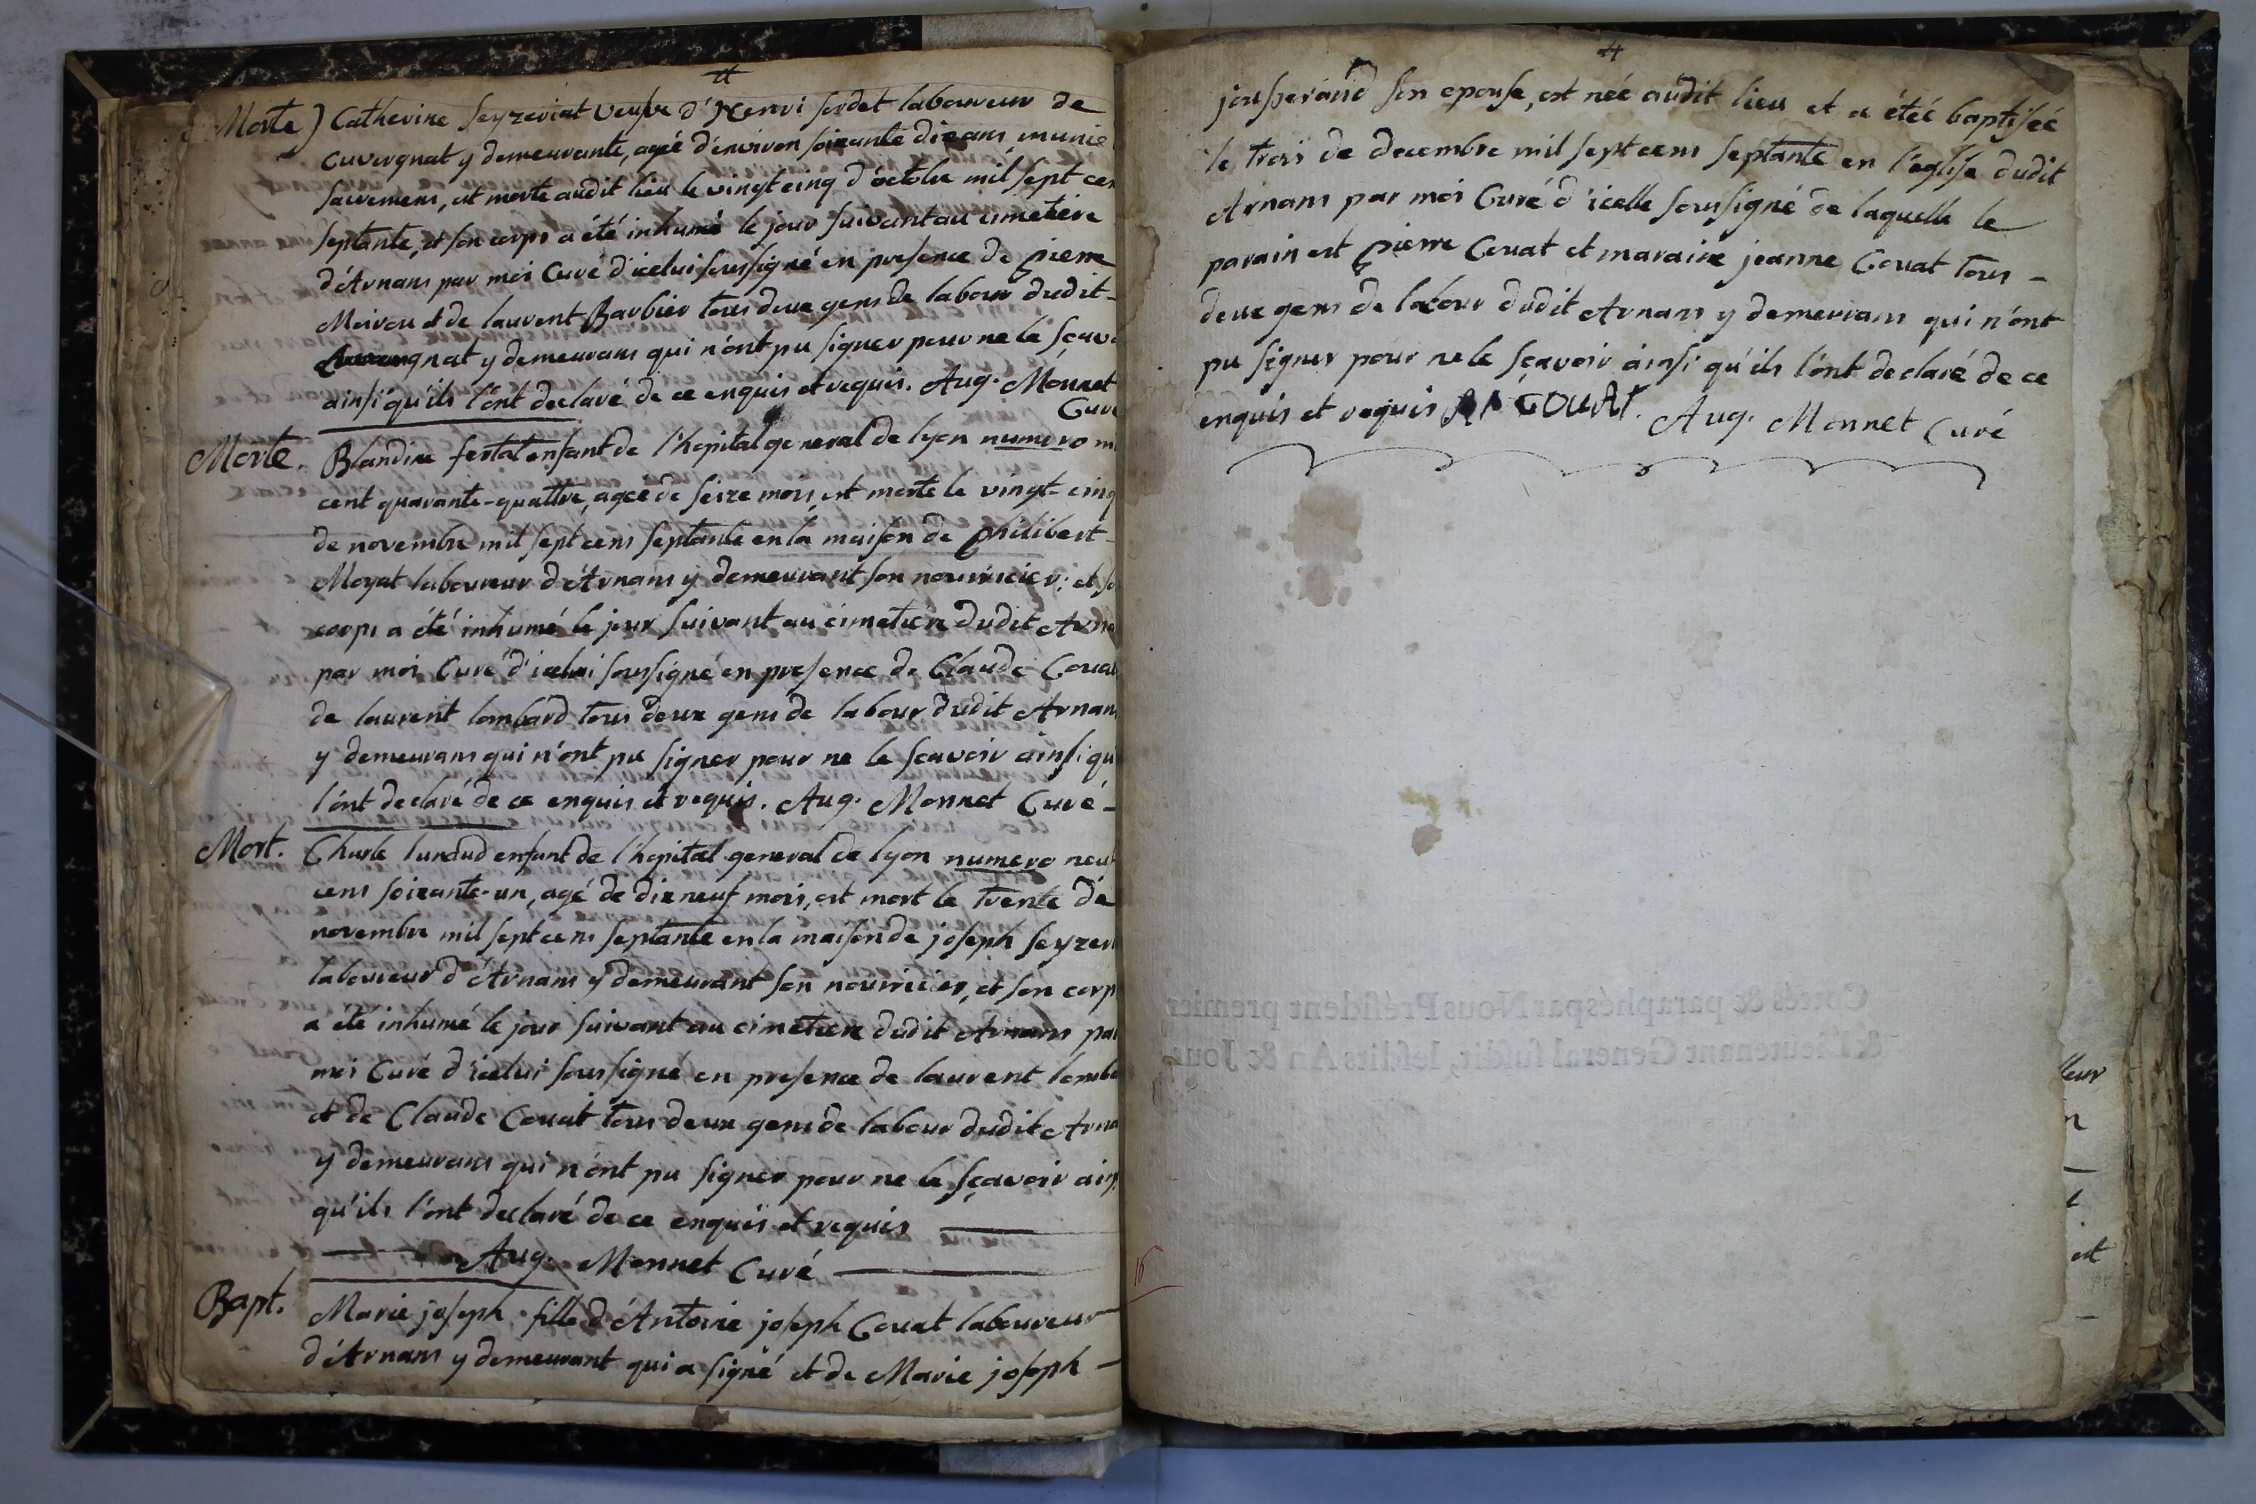 Morte) Catherine Seyzeriat veufve d'Henri Sordet laboureur de
Cuvergnat y demeurante, agé d'environ soixante dix ans, munie
sacremens, est morte audit lieu le vingt cinq d'octobre mil sept cen
septante, et son corps a été inhumé le jour suivant au cimetière
d'Arnans par moi Curé d'icelui soussigné en presence de Pierre
Moirou et de laurent Barbier tous deux gens de labour dudit
Cuvergnat y demeurans qui n'ont pu signer pour ne le sçavo
ainsi qu'ils l'ont declaré de ce enquis et requis. Aug. Monnet
Curé
Morte. Blandine enfant de l'hopital general de lyon numero m
cent quarante-quattre, agée de seize mois, est morte le vingt-cinq
de novembre mil sept cens septante en la maison de Philibert
Moyat laboureur d'Arnans y demeurant son nourricier; et so
corps a été inhumé le jour suivant au cimetiere dudit Arna
par moi Curé d'icelui soussigné en presence de Claude Couat
de laurent lombard tous deux gens de labour dudit Arnans
y demeurans qui n'ont pu signer pour ne le sçavoir ainsi qu'
l'ont declaré de ce enquis et requis. Aug. Monnet Curé
Mort. Charle enfant de l'hopital general de lyon numero neuf
cens soixante-un, agé de dix neuf mois, est mort le trente de
novembre mil sept cens septante en la maison de joseph Seyzer
laboureur d'Arnans y demeurant son nourricier, et son corp
a été inhumé le jour suivant au cimetiere dudit Arnans par
moi Curé d'icelui soussigné en presence de laurent lomba
et de Claude Couat tous deux gens de labour dudit Arna
y demeurans qui n'ont pu signer pour ne le sçavoir ains
qu'ils l'ont declaré de ce enquis et requis
Aug. Monnet Curé
Bapt. Marie joseph fille d'Antoine joseph Couat laboureur
d'Arnans y demeurant qui a signé et de Marie joseph
jousserand son epouse, est née audit lieu et a étéé baptiséé
le trois de decembre mil sept cens septante en l'église dudit
Arnans par moi Curé d'icelle soussigné de laquelle le
parain est Pierre Couat et maraine jeanne Couat tous
deux gens de labour dudit Arnans y demeurans qui n'ont
pu signer pour ne le sçavoir ainsi qu'ils l'ont declaré de ce
enquis et requis COUAT. Aug. Monnet Curé
Cottés & paraphés par Nous Président premier
& Lieutenant General susdit, lesdits An & Jour
leur
est